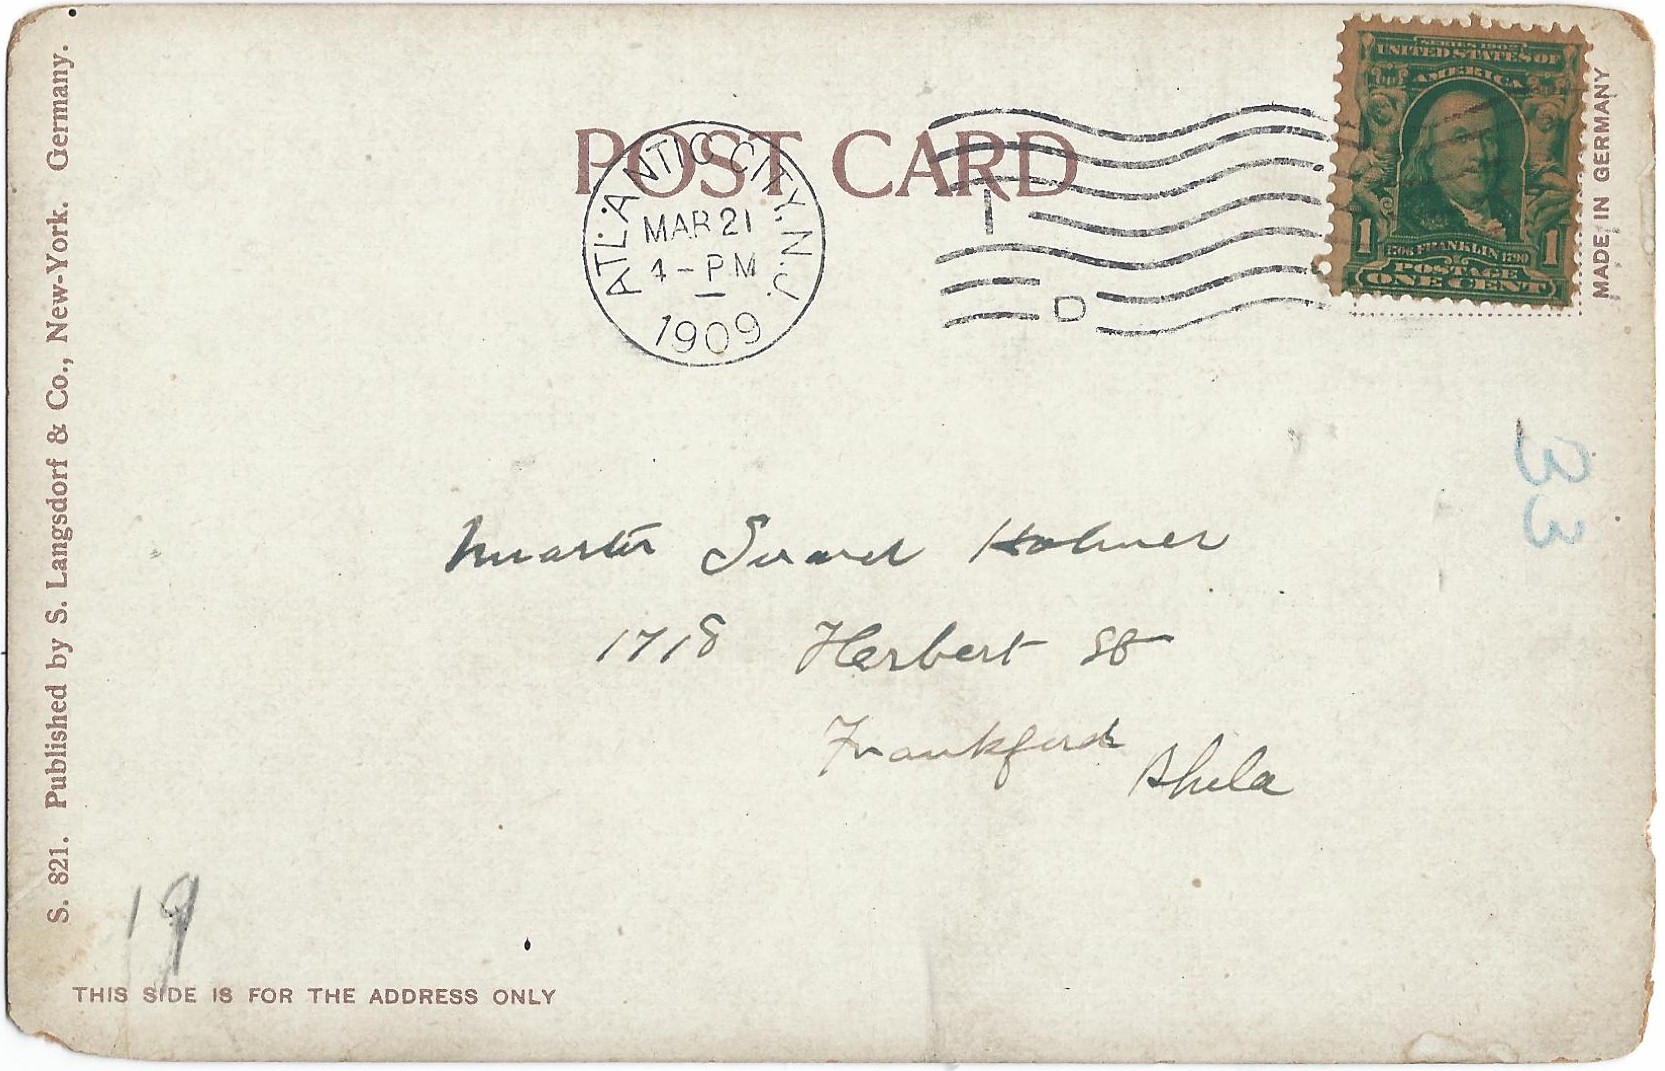 POST CARD
ATLANTIC CITY, N.J.
MAR 21
4-PM
1909
D
SERIES 1902
UNITED STATES OF
AMERICA
1 1
1706 FRANKLIN 1790
POSTAGE
ONE CENT
MADE IN GERMANY
33
Master Holmes
1718 Herbert St
Frankford Phila
19
S. 821. Published by S. Langsdorf & Co., New-York. Germany.
THIS SIDE IS FOR THE ADDRESS ONLY